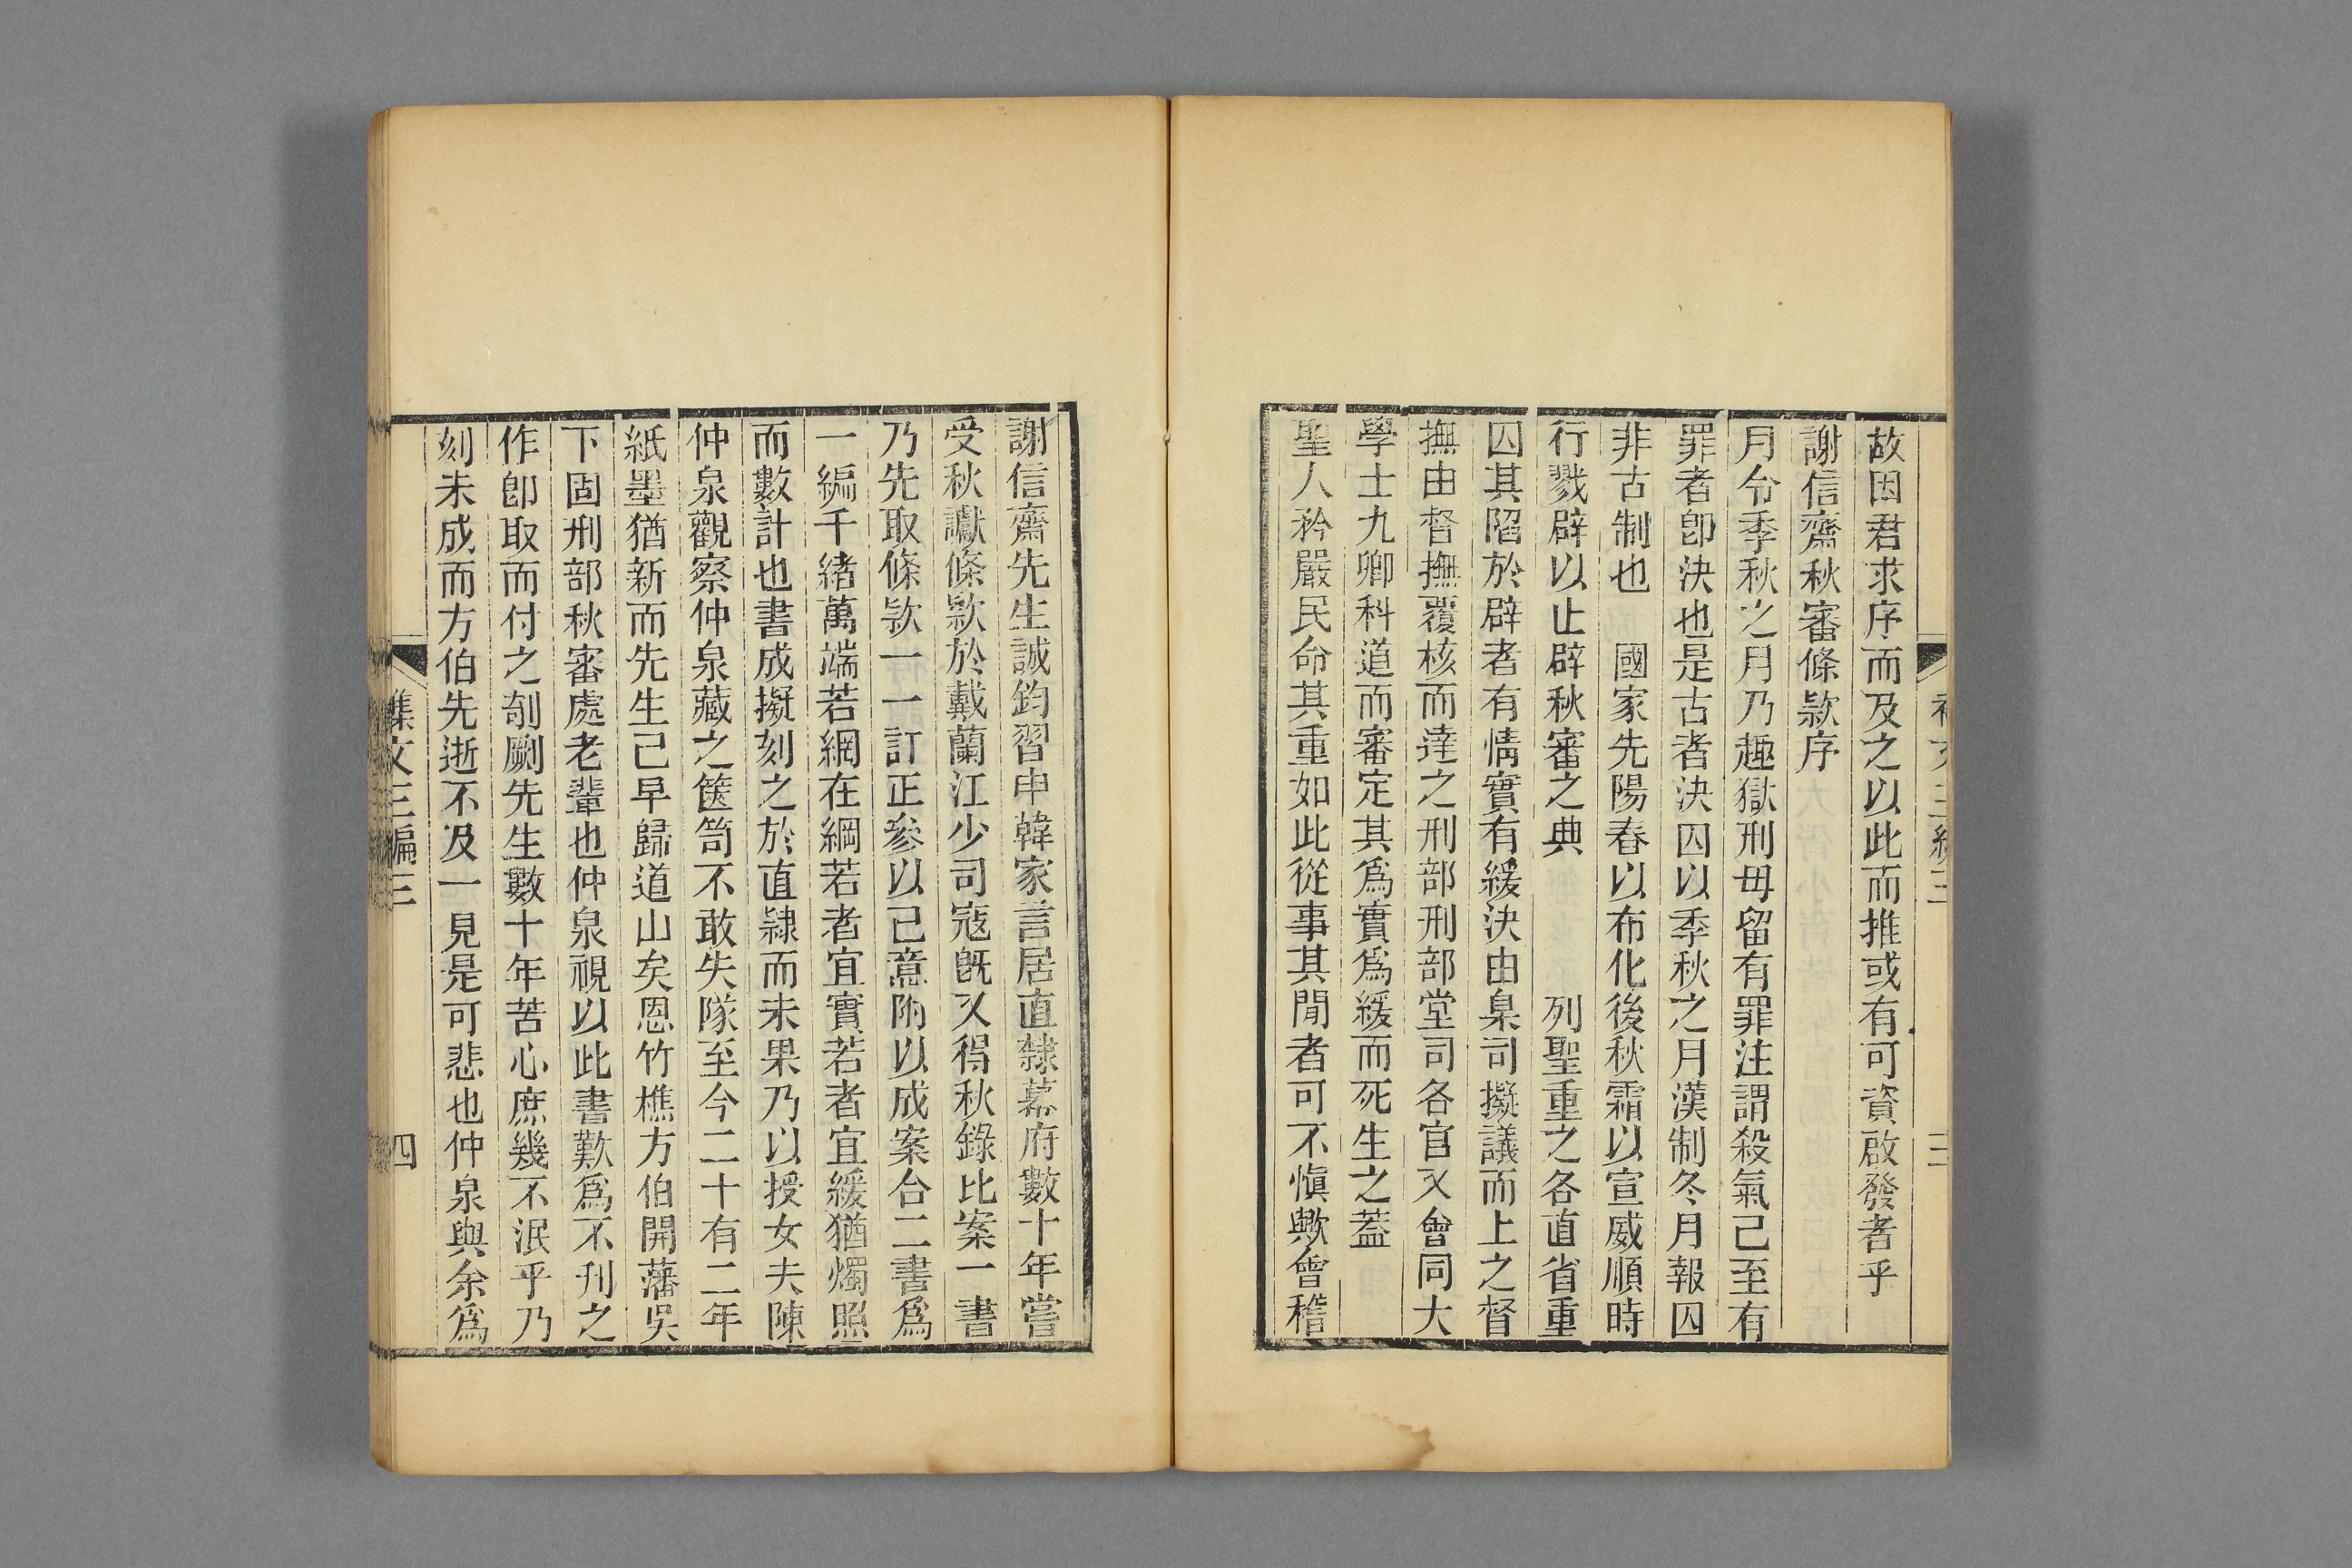 故因君求序而及之以此而推或有可資啟發者乎
謝信齋秋審條欵序
月令季秋之月乃趣獄刑毋留有罪注謂殺氣已至有
罪者卽決也是古者決囚以季秋之月漢制冬月報囚
非古制也　國家先陽春以布化後秋霜以宣威順時
行戮辟以止辟秋審之典　　　列聖重之各直省重
囚其陷於辟者有情實有緩決由臬司擬議而上之督
撫由督撫覆核而達之刑部刑部堂司各官又會同大
學士九卿科道而審定其爲實爲緩而死生之葢
聖人矜嚴民命其重如此從事其閒者可不愼歟會稽
謝信齋先生誠鈞習申韓家言居直隸幕府數十年嘗
受秋讞條欵於戴蘭江少司寇旣又得秋錄比案一書
乃先取條欵一一訂正參以己意附以成案合二書爲
一編千緒萬端若網在綱若者宜實若者宜緩猶燭照
而數計也書成擬刻之於直隸而未果乃以授女夫陳
仲泉觀察仲泉藏之篋笥不敢失隊至今二十有二年
紙墨猶新而先生已早歸道山矣恩竹樵方伯開藩吳
下固刑部秋審處老輩也仲泉視以此書歎爲不刋之
作卽取而付之剞劂先生數十年苦心庶幾不泯乎乃
刻未成而方伯先逝不及一見是可悲也仲泉與余爲
雜文三編三
四